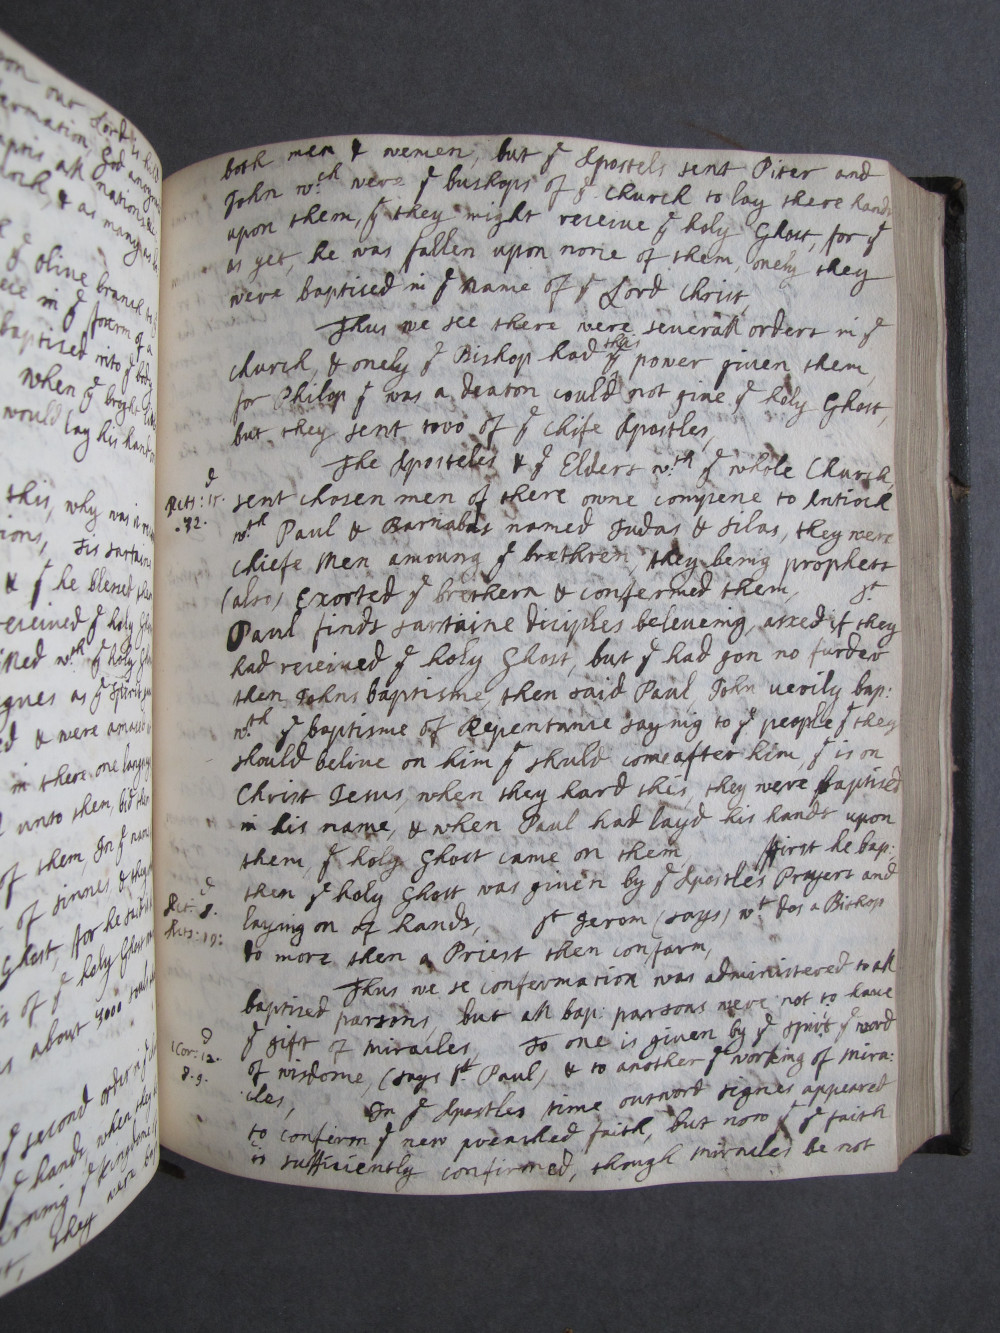 on our Lord is his
formation, God anoynt
apris all nations
& as many as
& yͤ olive branch to yͤ
in yͤ fforem of a
baptised into yͤ body
when yͤ bright
would lay his hand
this, why was
& yͭ he blessed them
receiued yͤ holy Gho
wͭʰ yͤ holy
signes as yͤ Spirit
& were amased
in there one langu
unto them, bid
of them, In yͤ nam
of sinnes & they
Ghost, for he said
of yͤ holy Ghost
about 3000 souls
yͤ second order in yͤ
yͤ hands, when they
yͤ kingdome
they were bap
both men & wemen, but yͤ Apostels sent Piter and
John wͨʰ were yͤ bushops of yͤ Church to lay there hands
upon them, yͭ they might receive yͤ holy Ghost, for yͭ
as yet, he was fallen upon none of them, onely they
were baptised in yͤ name of yͤ Lord Christ,
Thus we see there were, severall orders in yͤ
church, & onely yͤ Bishop had this power given them,
for Philop yͭ was a deacon could not give yͤ holy Ghost,
but they sent twoo of yͤ chife Apostles,
The Aposteles & yͤ Elders wͭʰ yͤ whole Church,
Acts: 15. sent chosen men of there owne compene to Antioch
.32. wͭʰ Paul & Barnabas named Judas & Silas, they were
chiefe Men amoung yͤ brethren, they being prophets
(also) Exorted yͤ brethern & confermed them, Sͭ
Paul finds sartaine diciples beleveing, asked if they
had receiued yͤ holy Ghost, but yͭ had gon no furder
then Johns baptisme, then said Paul, John verily bap:
wͭʰ yͤ baptisme of Repentance saying to yͤ people yͭ they
should belive on him yͭ should come after him, yͭ is on
Christ Jesus, when they hard this, they were baptised
in his name, & when Paul had layd his hands upon
them, yͤ holy Ghost came on them, ffirst he bap:
Act: 8. then yͤ holy Ghost was given by yͤ Apostles Prayers and
Acts: 19: laying on of hands, Sͭ Jerom (says) wͭ dos a Bishop
to more then a Priest then confarm,
Thus we se confermation was administered to all
baptised parsons, but all bap: parsons were not to have
1 Cor: 12. yͤ gift of miracles, To one is given by yͤ Spirit yͤ word
8.9. of wisdome, (says Sͭ Paul) & to another yͤ working of mira:
cles, In yͤ Apostles time outword signes appeared
to conferm yͤ new preached faith, but now yͭ yͤ faith
is sufficiently confirmed, though miracles be not